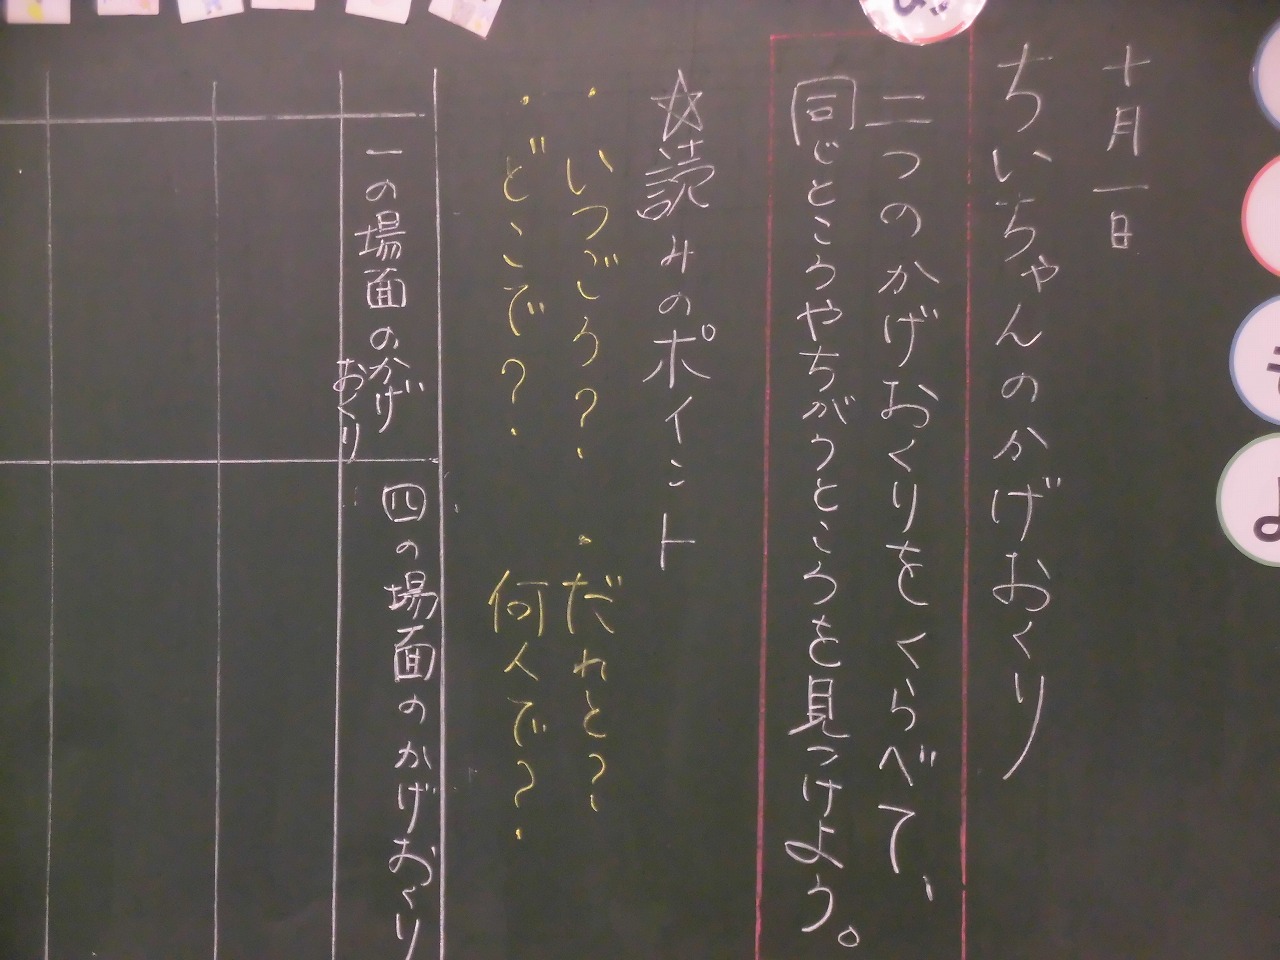 十月一日
ちいちゃんのかげおくり
二つのかげおくりをくらべて、
同じところやちがうところを見つけよう。
☆読みのポイント
・いつごろ？
・だれと？
・どこで？
・何人で？
一の場面のかげおくり
四の場面のかげおくり